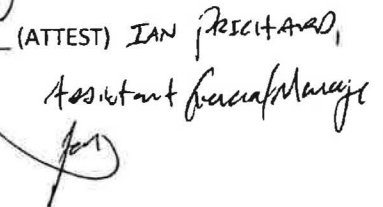 (ATTEST) IAN PRICHARD,
Assistant General Manager